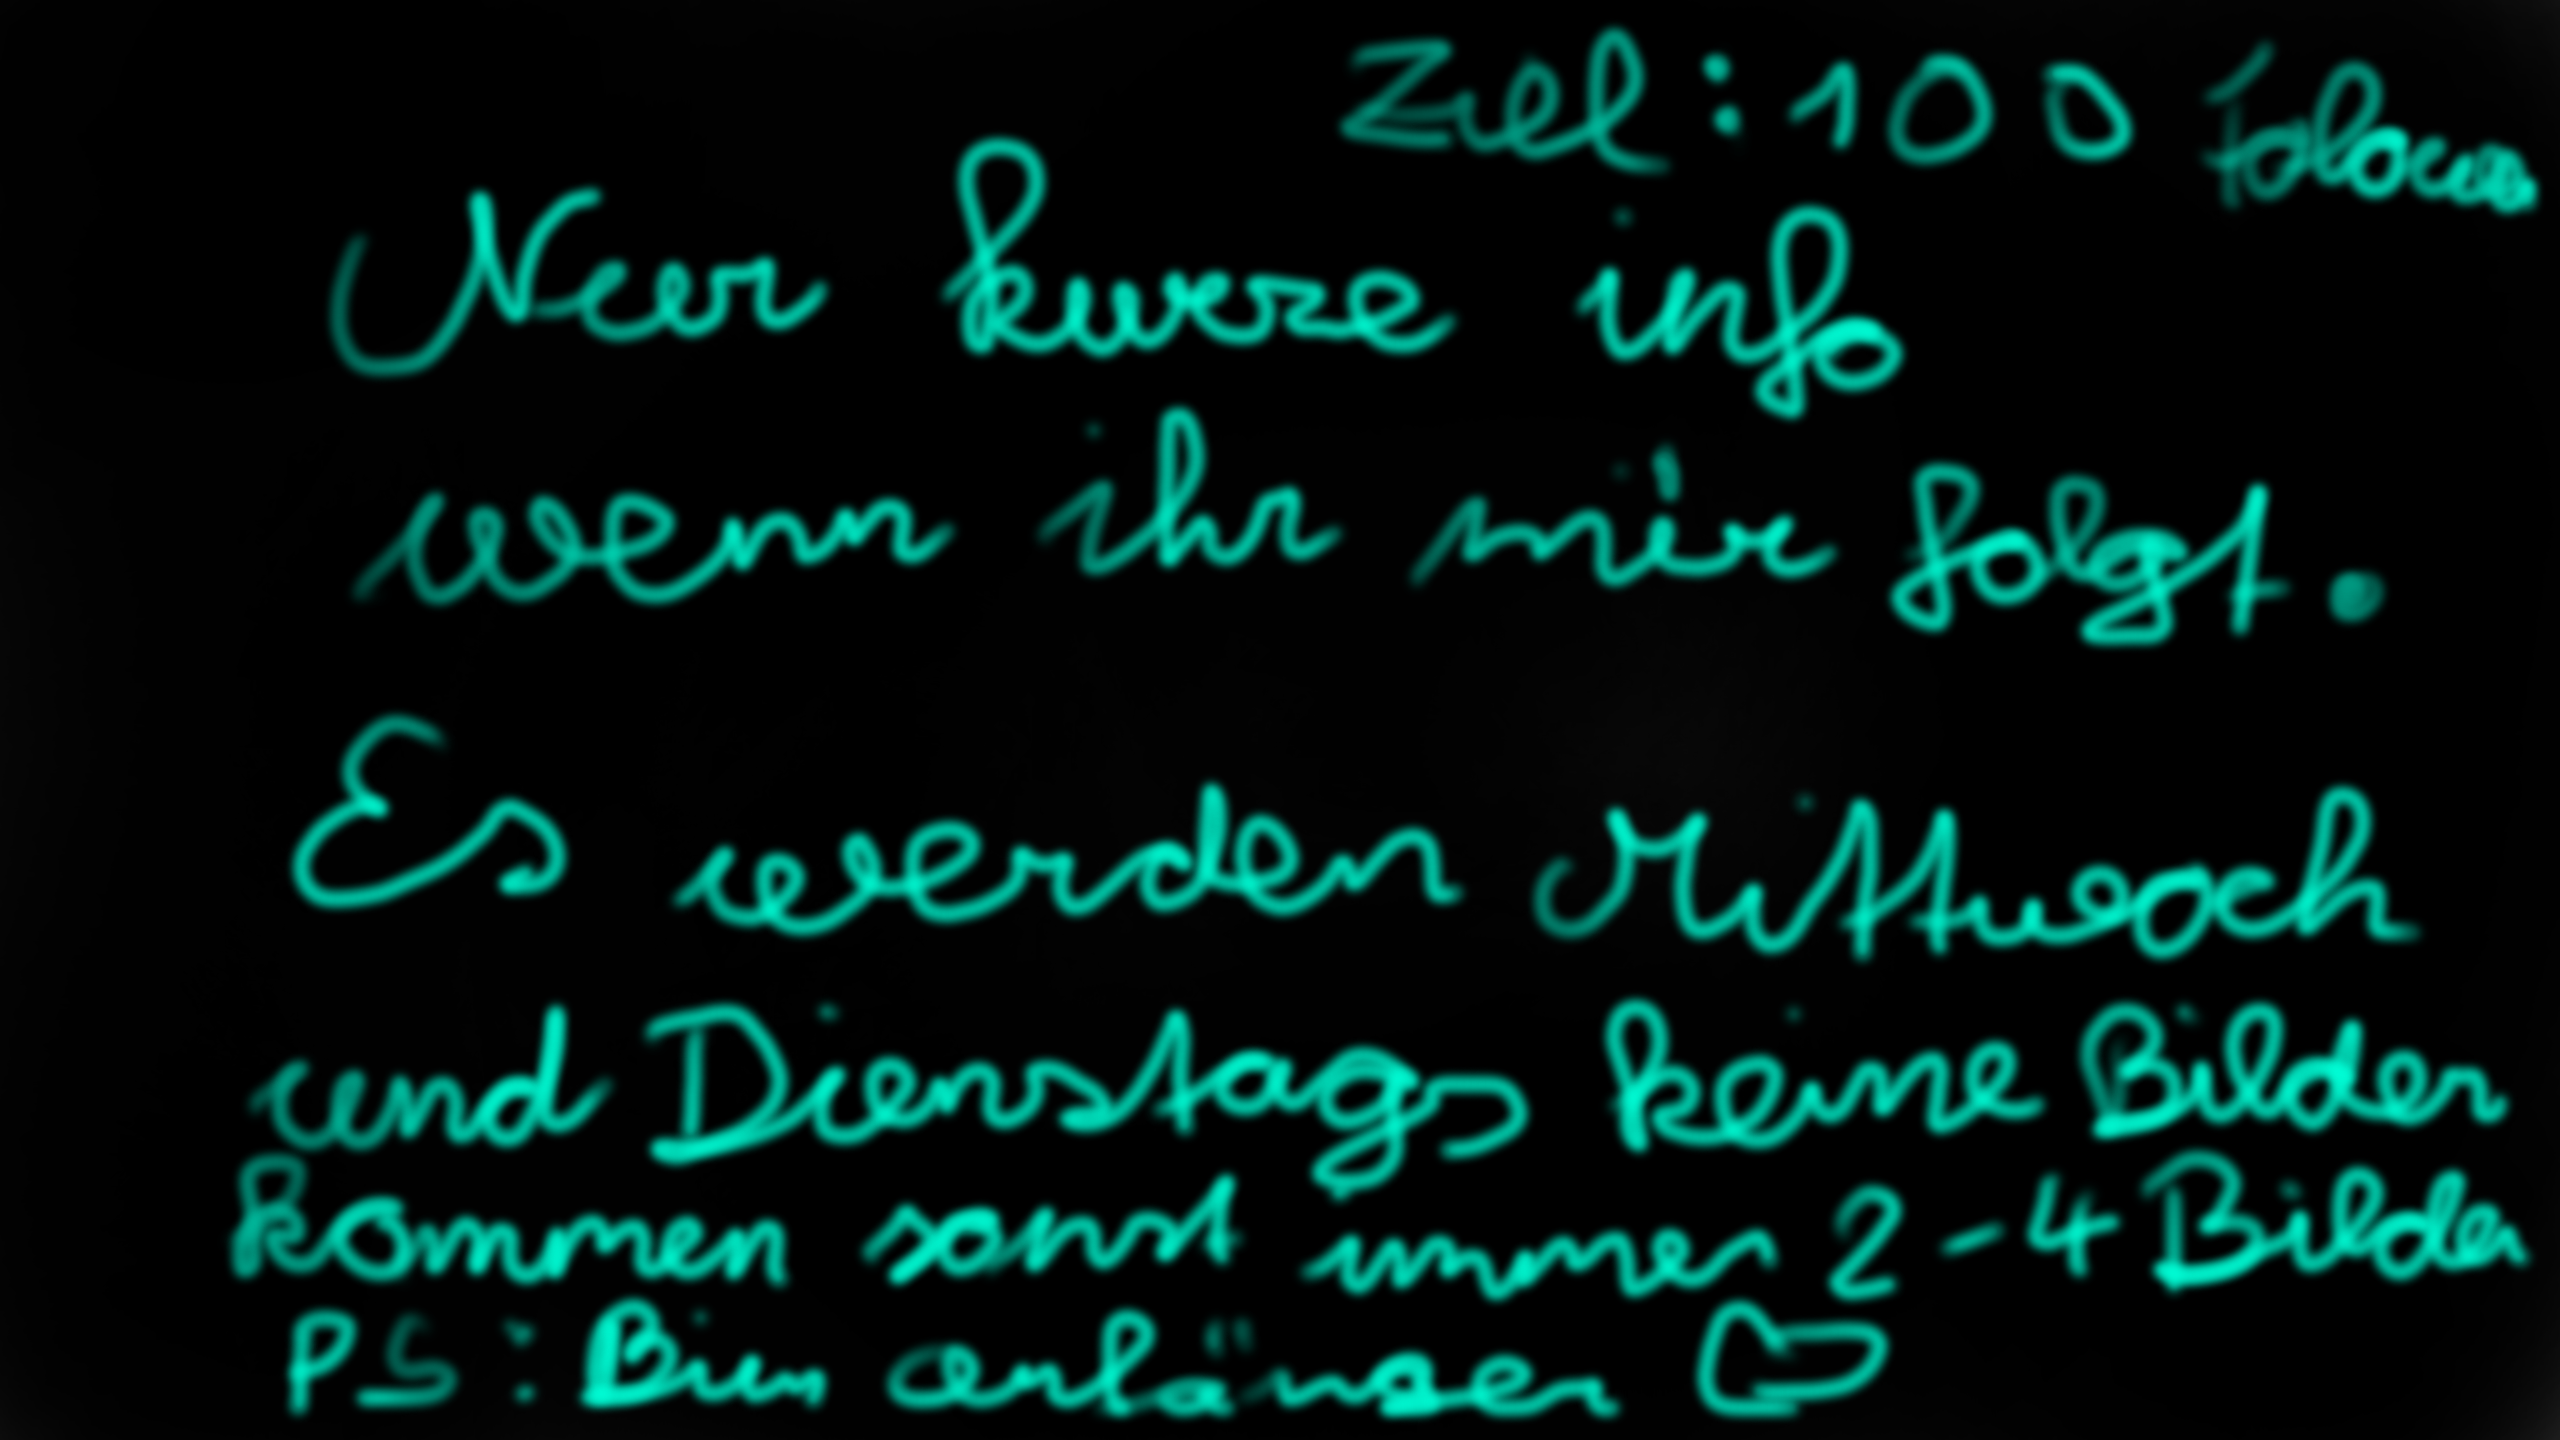 Ziel: 100 Folower
Nur kurze info
wenn ihr mir folgt.
Es werden Mittwoch
und Dienstags keine Bilder
kommen sonst immer 2-4 Bilder
PS: Bin